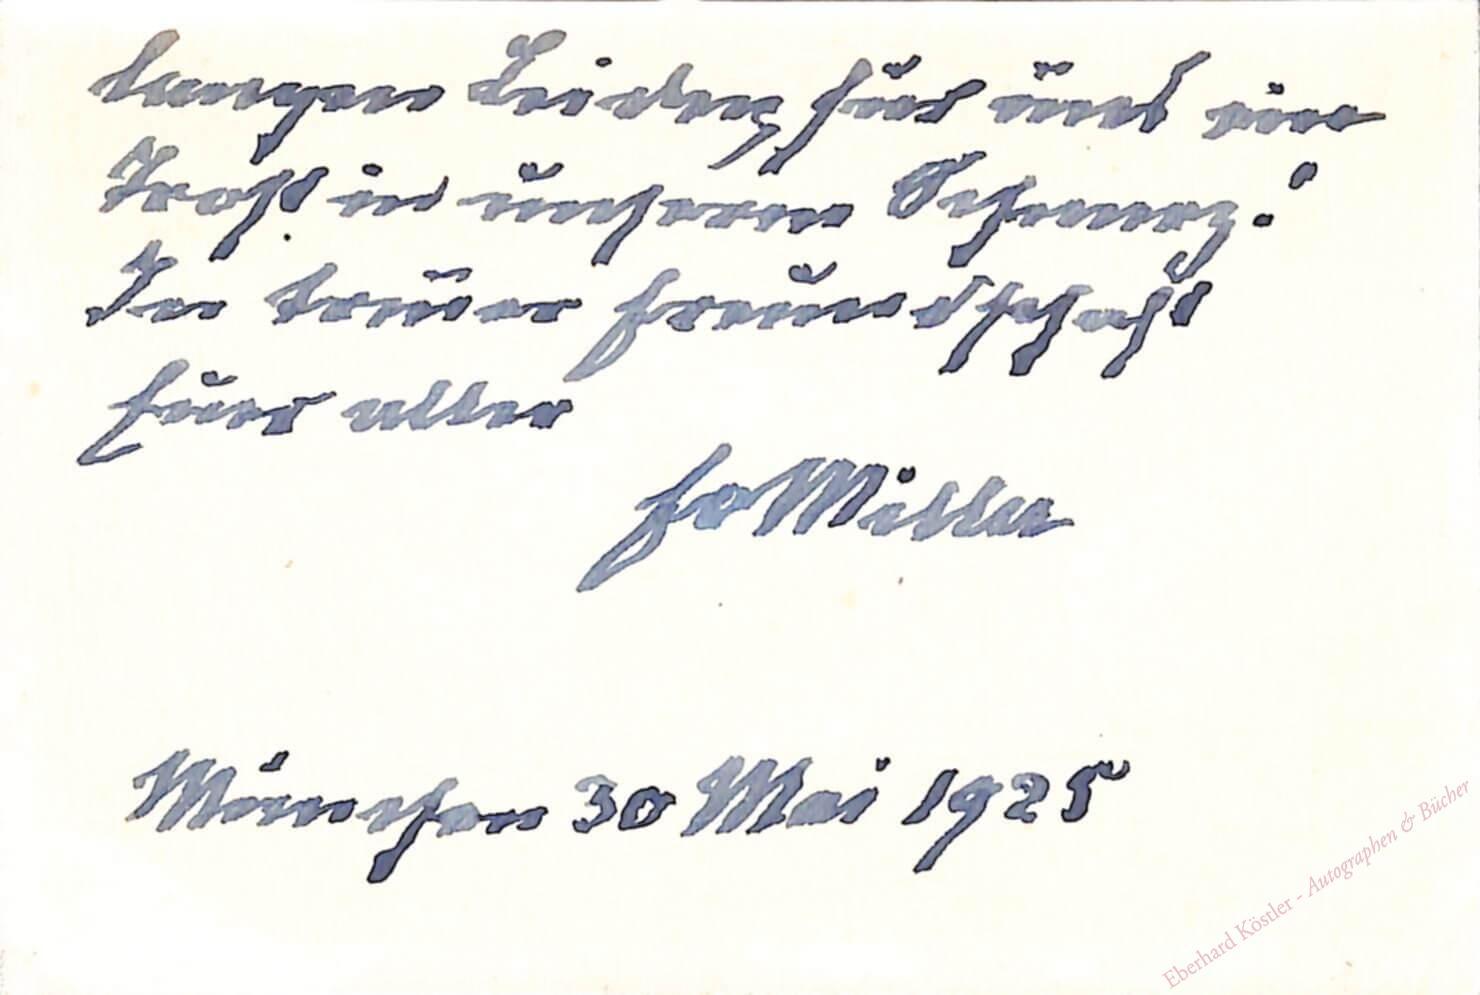 langen Leidens hat uns ein
Trost in unserm Schmerz!
In treuer Freundschaft
Euer alter
FvMiller
München 30 Mai 1925
Eberhard Köstler - Autographen & Bücher